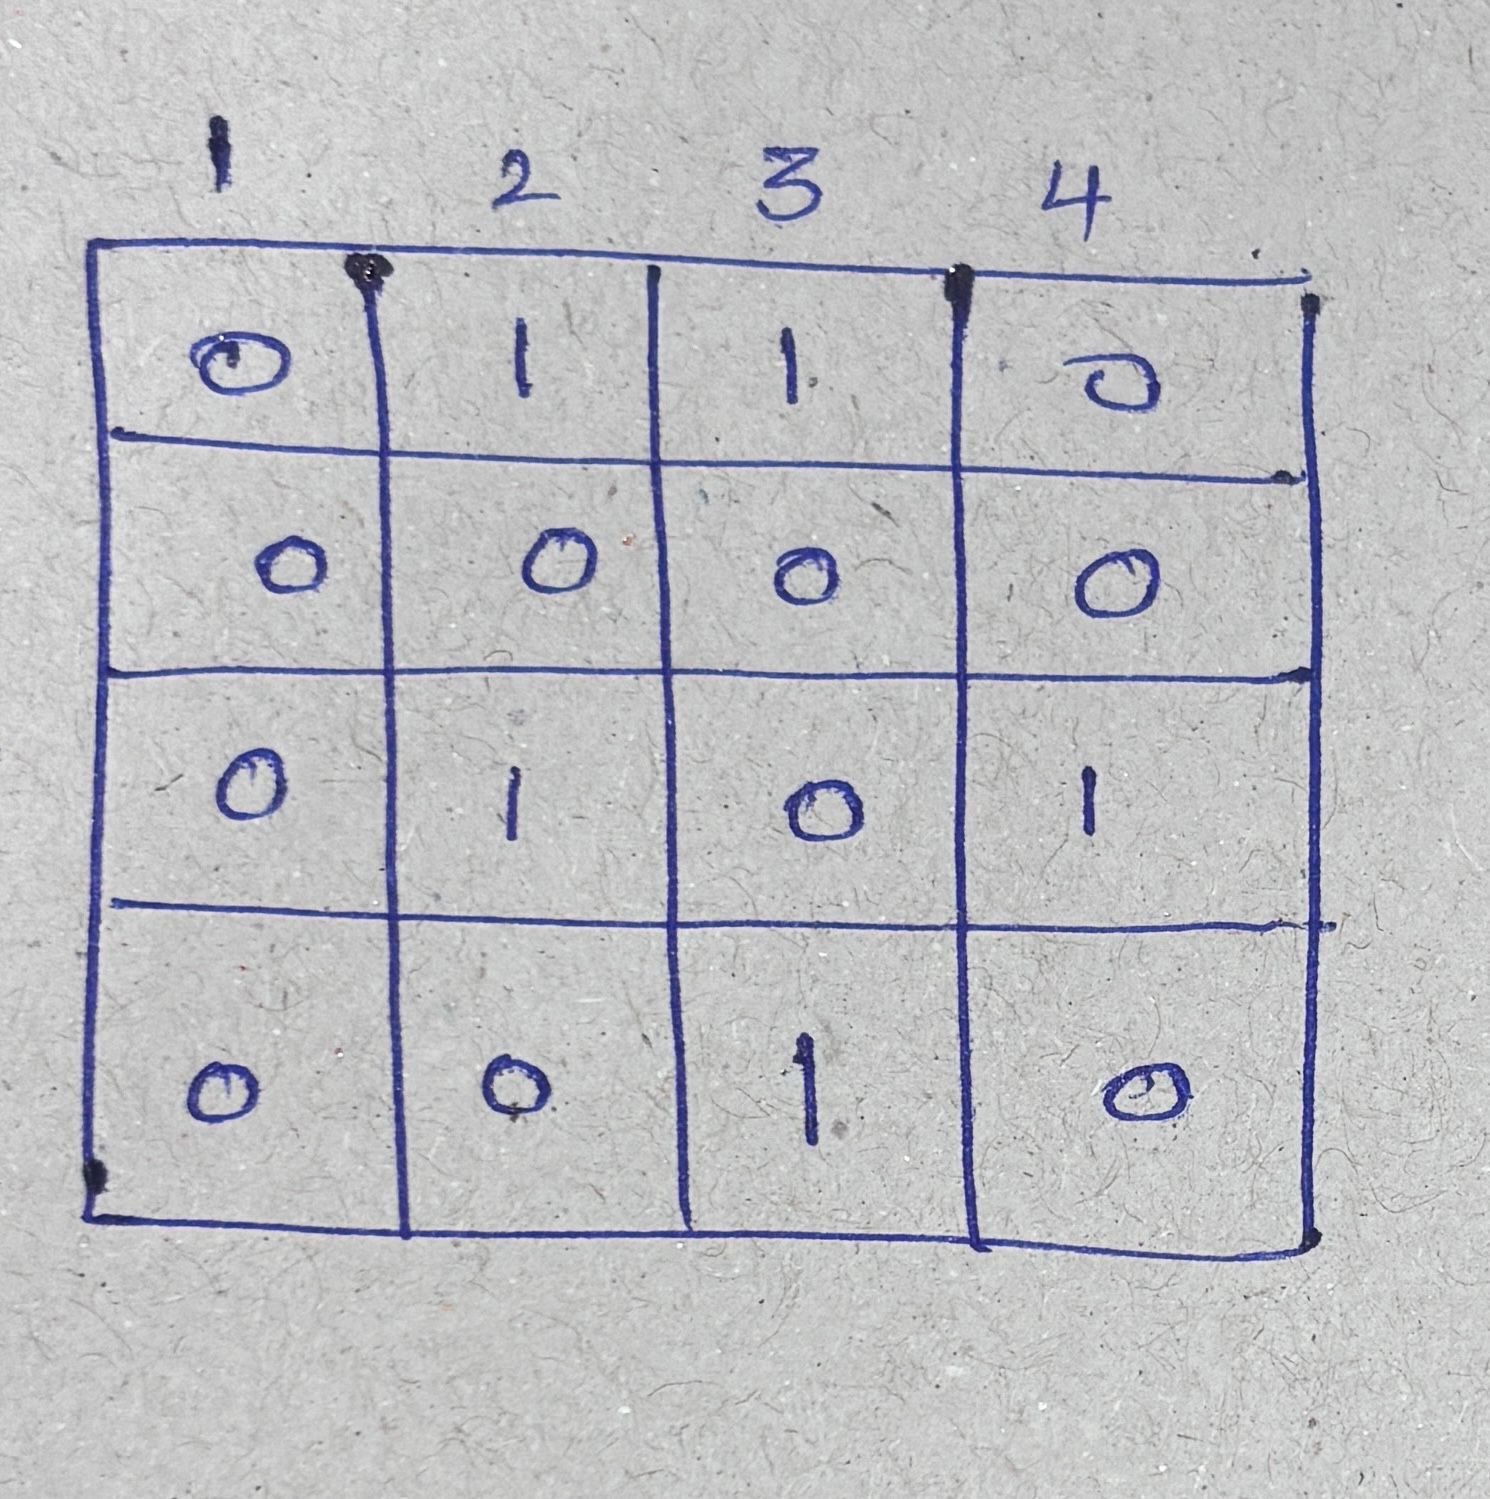 1 2 3 4
0 1 1 0
0 0 0 0
0 1 0 1
0 0 1 0